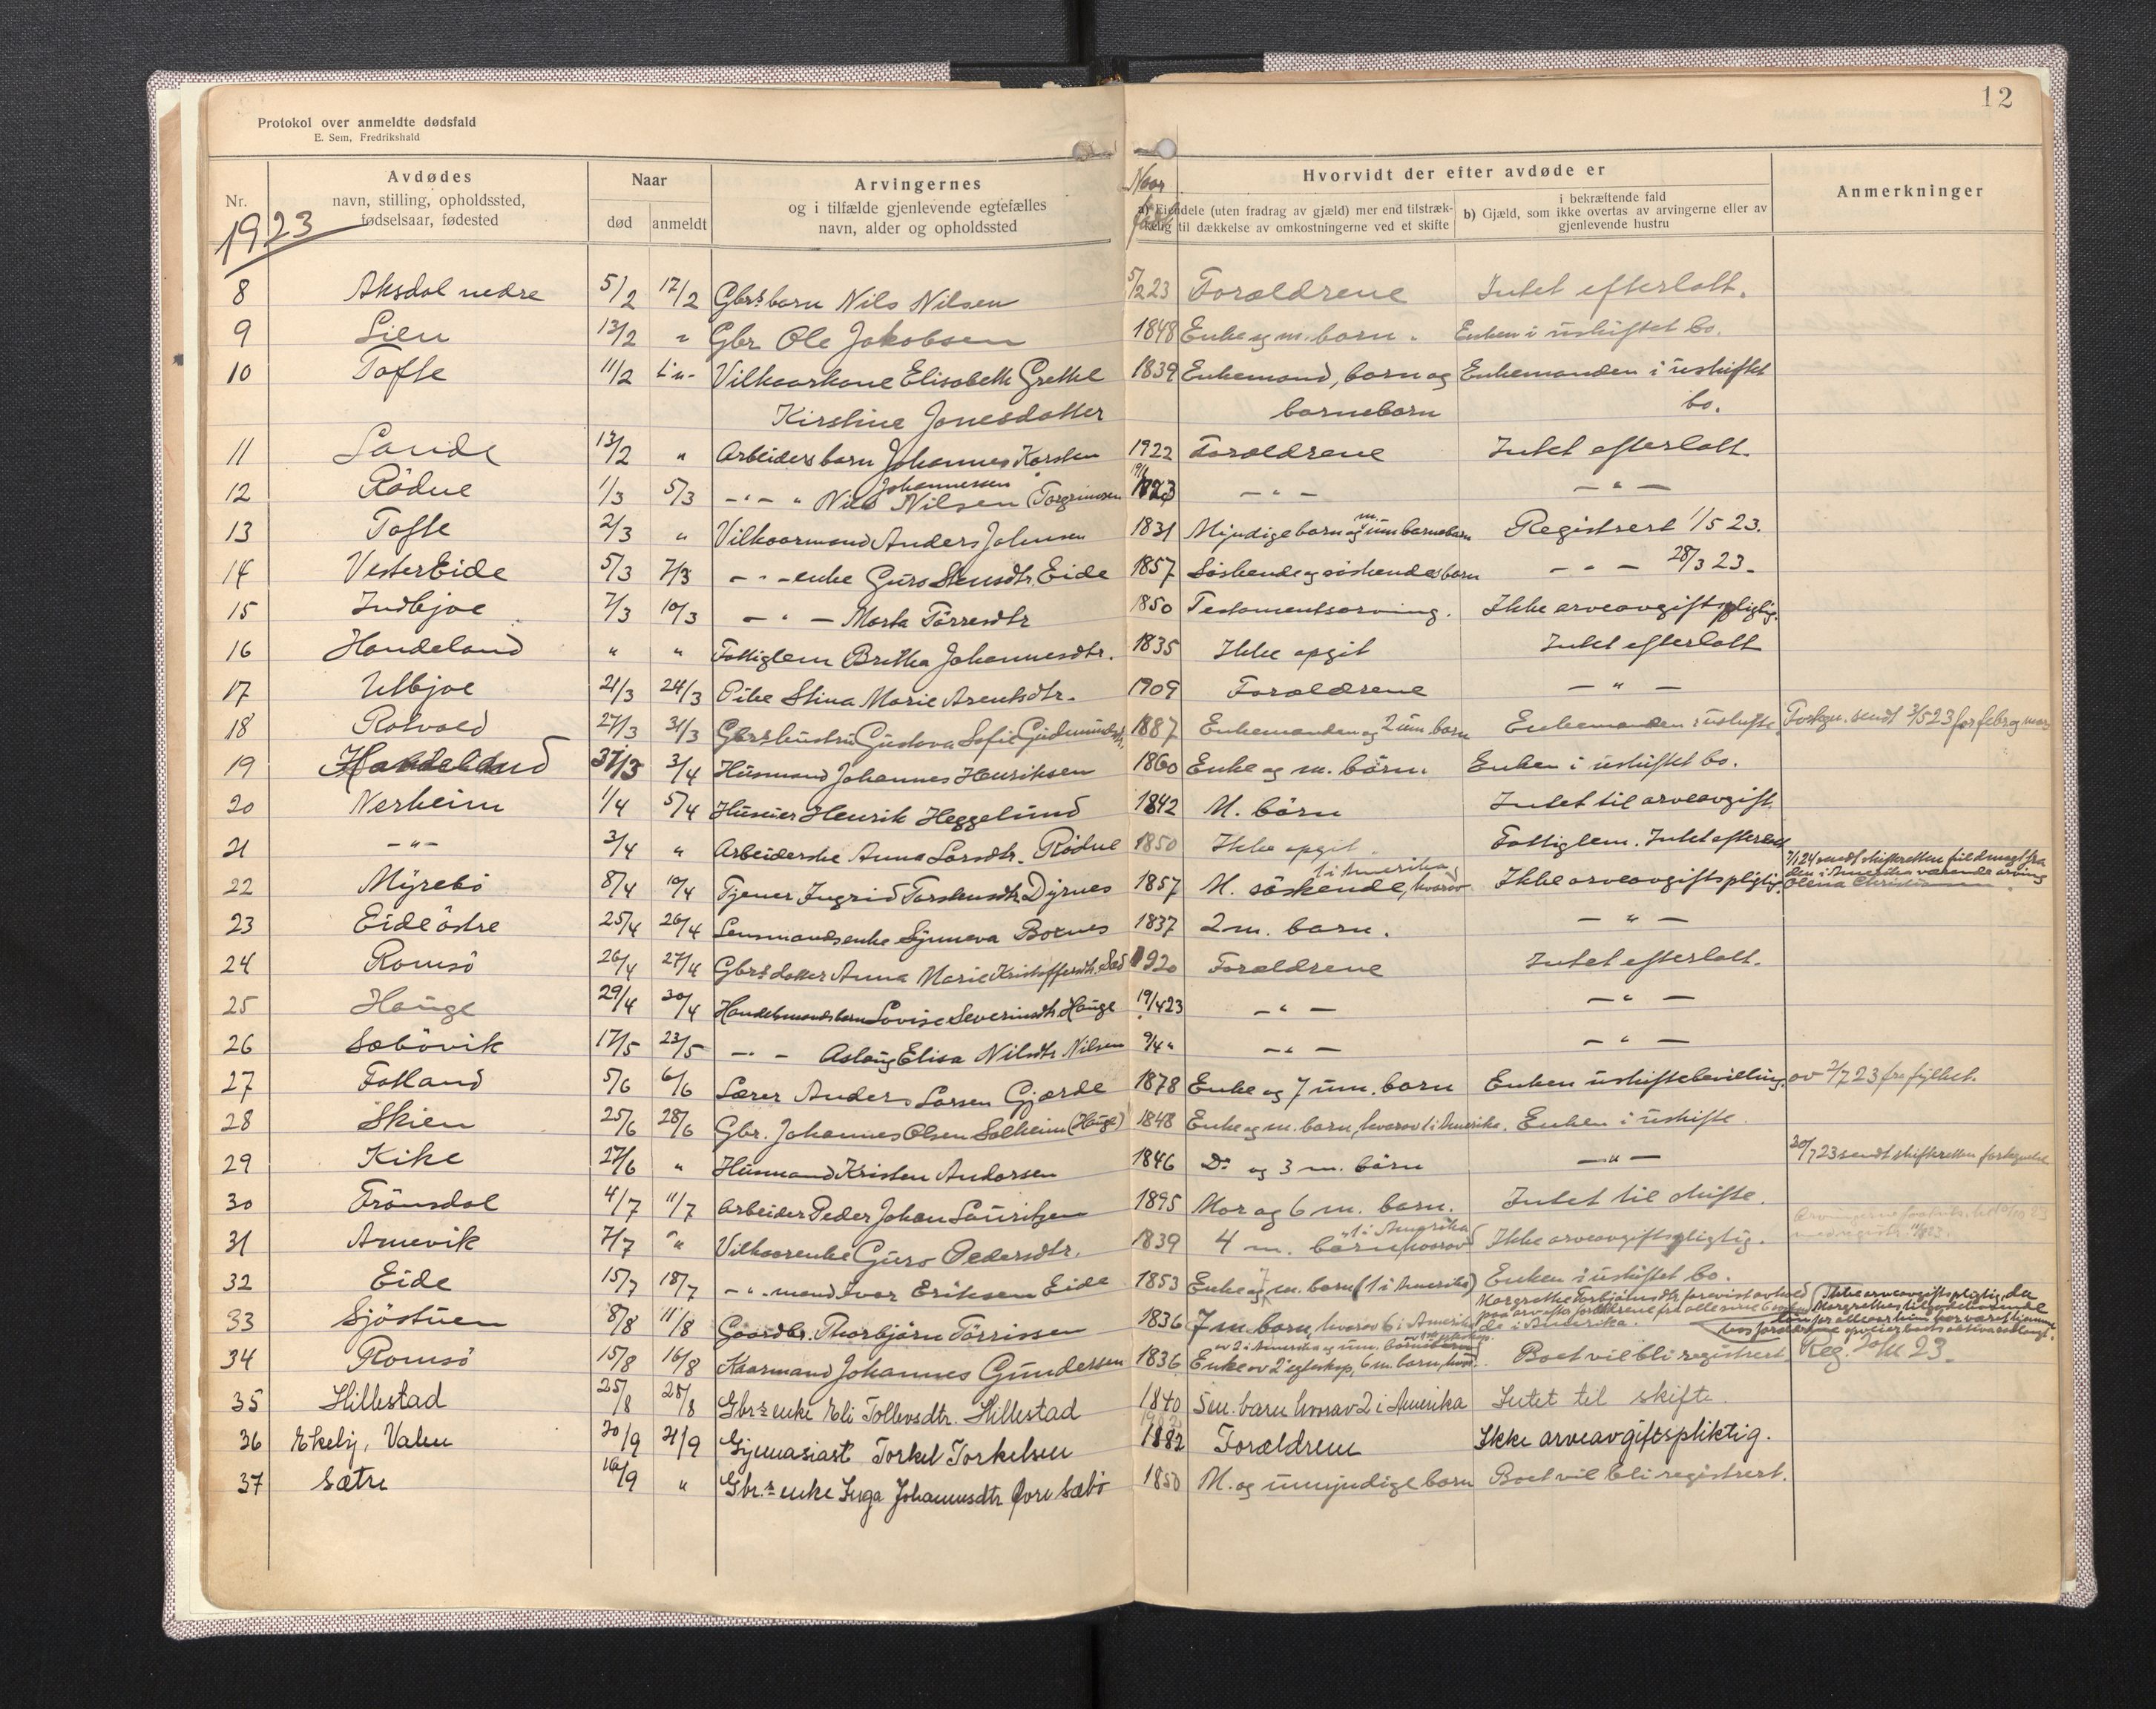 Protokol over anmeldte dødsfald
E. Sem, Fredrikshald
12
Nr.
Avdødes
navn, stilling, opholdssted,
fødselsaar, fødested
Naar
død anmeldt
Arvingernes
og i tilfælde gjenlevende egtefælles
navn, alder og opholdssted
Naar
født
Hvorvidt der efter avdøde er
a) Eiendele (uten fradrag av gjæld) mer end tilstræk-
kelig til dækkelse av omkostningerne ved et skifte
i bekræftende fald
b) Gjæld, som ikke overtas av arvingerne eller av
gjenlevende hustru
Anmerkninger
1923
8 Aksdal nedre 5/2 17/2 Gbrs barn Nils Nilsen 5/2 23 Forældrene Intet efterlatt.
9 Lien 13/2 " Gbr Ole Jakobsen 1848 Enke og m. barn. Enken i uskiftet bo.
10 Tofte 11/2 Vilkaarkone Elisabeth Grethe 1839 Enkemand, barn og Enkemanden i uskiftet
Kirstine Jonesdatter barnebarn bo.
11 Sande 13/2 " Arbeidersbarn Johannes Karsten 1922 Forældrene Intet efterlatt.
Johannessen
12 Rödne 1/3 5/3 - " - " Nils Nilsen (Torgrimsen 1923 - " - - " -
13 Tofte 2/3 " Vilkaarmand Anders Johnsen 1831 Myndige barn og um barnebarn Registrert 1/5 23.
14 Vester Eide 5/3 7/3 - " - enke Guro Stensdtr. Eide 1857 Söskende og söskendesbarn - " - 28/3 23.
15 Indbjoe 7/3 10/3 - " - Marta Törresdtr 1850 Testamentsarving. Ikke arveavgiftspligtig.
16 Handeland " " Fattiglem Britha Johannesdtr. 1835 Ikke opgit Intet efterlatt
17 Utbjoe 21/3 24/3 Pike Stina Marie Arentsdtr. 1909 Forældrene - " -
18 Rotvold 27/3 31/3 Gbrs hustru Gustava Sofie Gudmundsdtr. 1887 Enkemanden og 2 um. barn Enkemanden i uskifte Fortegn. sendt 3/5 23 for febr og mars
19 Handeland 31/3 3/4 Husmand Johannes Henriksen 1860 Enke og m. börn. Enken i uskiftet bo.
20 Nerheim 1/4 5/4 Huseier Henrik Heggelund 1842 M. börn Intet til arveavgift.
21 - " - 3/4 " Arbeiderske Anna Larsdtr. Rödne 1850 Ikke opgit. Fattiglem. Intet efterlatt
1 i Amerika
7/1 24 sendt skifteretten fuldmagt fra
den i Amerika værende arving
22 Myrebö 8/4 10/4 Tjener Ingrid Torstensdtr. Dyrnes 1857 M. söskende, hvorav Ikke arveavgiftspligtig. Olena Christiansen.
23 Eide östre 25/4 26/4 Lensmandsenke Synneva Boknes 1837 2 m. barn. - " -
24 Romsö 26/4 27/4 Gbrs datter Anna Marie Kristoffersdtr. 1920 Forældrene Intet efterlatt.
25 Hauge 29/4 30/4 Handelsmandsbarn Lovise Severinsdtr Hauge 19/4 23 - " - - " -
26 Sæbövik 17/5 23/5 - " - Aslaug Elisa Nilsdtr Nilsen 9/4 " - " - - " -
27 Fatland 5/6 6/6 Lærer Anders Larsen Gjærde 1878 Enke og 7 um. barn Enken uskiftebevilling av 2/7 23 fra fylket.
28 Skien 25/6 28/6 Gbr. Johannes Olsen Solheim (Hauge) 1848 Enke og m. barn, hvorav 1 i Amerika. Enken i uskifte.
29 Kike 27/6 " Husmand Kristen Andersen 1846 Do og 3 m. börn - " - 20/7 23 sendt skifteretten fortegnelse
30 Trönsdal 4/7 11/7 Arbeider Peder Johan Lauritzen 1895 Mor og 6 m. barn. Intet til skifte.
1 i Amerika
31 Arnevik 7/7 " Vilkaarenke Guro Pedersdtr. 1839 4 m. börn, hvorav Ikke arveavgiftspligtig.
32 Eide 15/7 18/7 - " - mand Ivar Eriksen Eide 1853 Enke og m. barn (1 i Amerika) Enken i uskiftet bo.
33 Sjöstuen 8/8 11/8 Gaardbr. Thorbjörn Törrissen 1836 7 m. barn, hvorav 6 i Amerika
Margrethe Torbjörnsdtr. forevist avkald
paa arv efter forældrene fra alle sine 6 söskende i Amerika.
Ikke arveavgiftspligtig, da
Margrethes tilgodehavende
34 Romsö 15/8 16/8 Kaarmand Johannes Gundersen 1836 Enke av 2' egteskap, 6 m. barn, hvor- Boet vil bli registrert Reg. 20/11 23.
av 2 i Amerika og um. barnebarn
35 Hillestad 25/8 28/8 Gbrs enke Eli Tollevsdtr. Hillestad 1840 5 m. barn hvorav 2 i Amerika Intet til skifte
36 Ekelij, Valen 20/9 21/9 Gymnasiast Torkel Torkelsen 1882 Forældrene Ikke arveavgiftspliktig.
37 Sætre 16/9 " Gbr.s enke Inga Johannesdtr Övre Sæbö 1850 M. og umyndige barn Boet vil bli registrert.